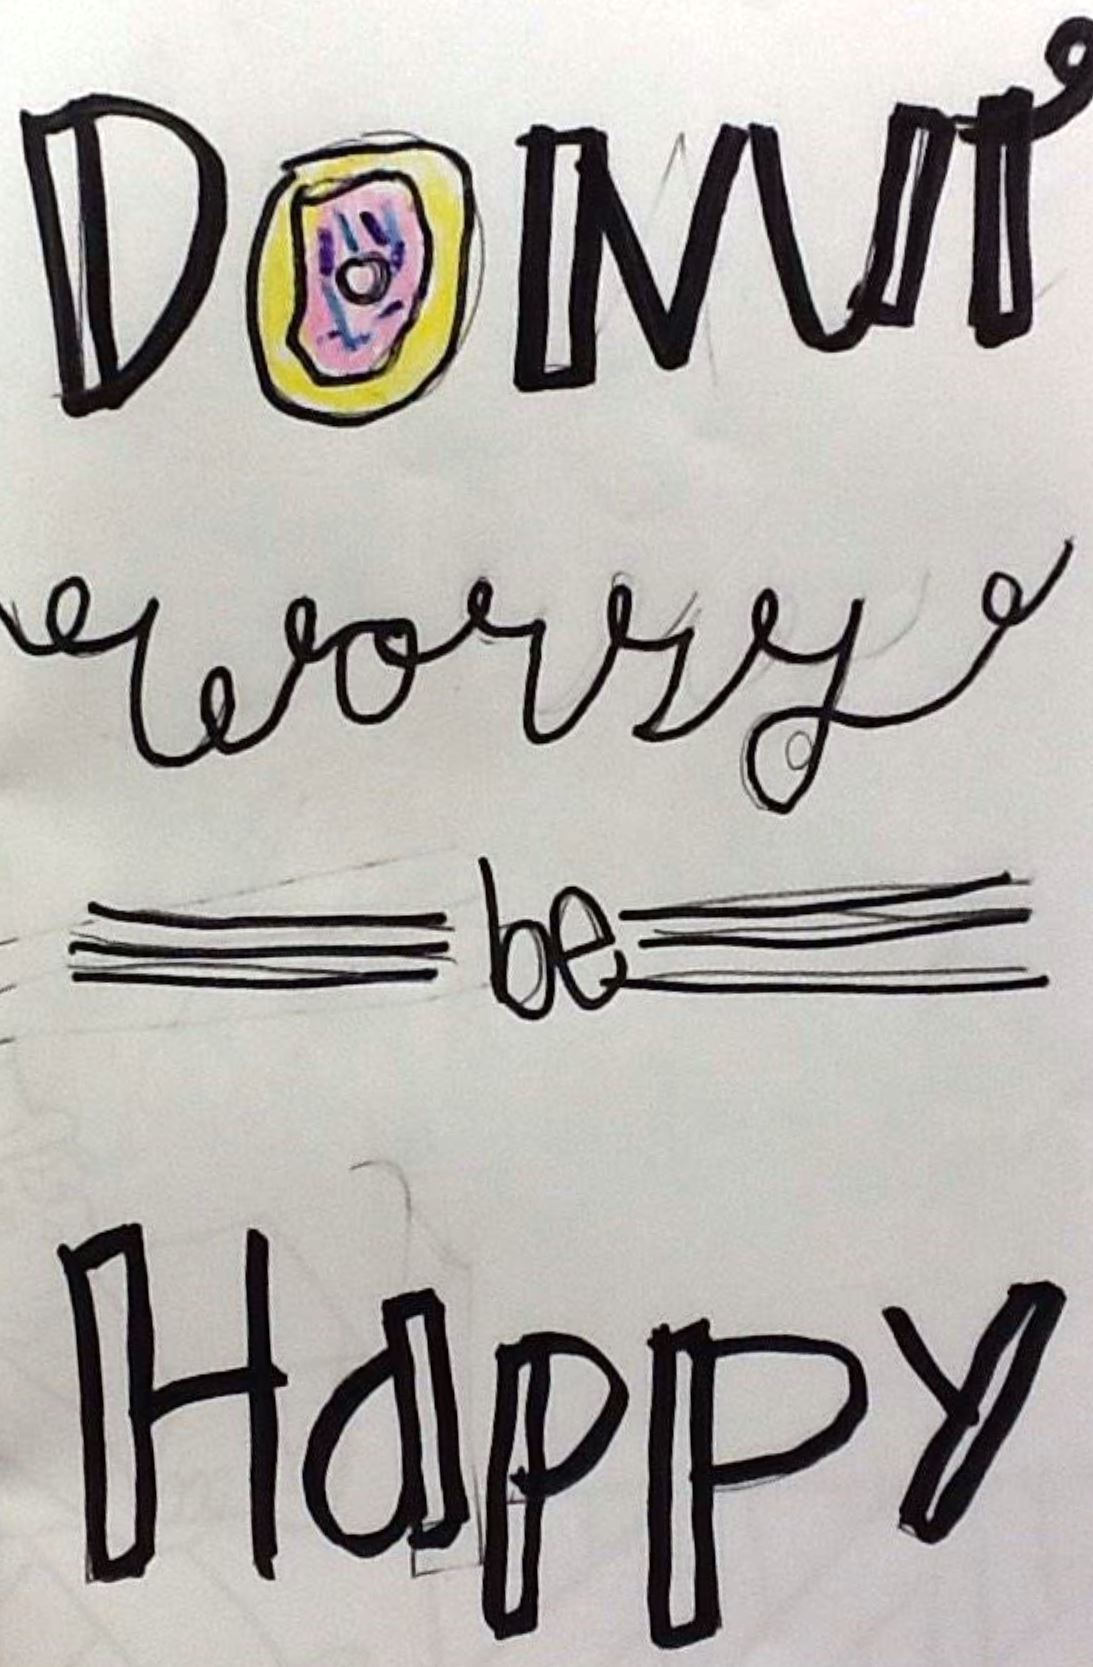 DONUT
worry
be
Happy